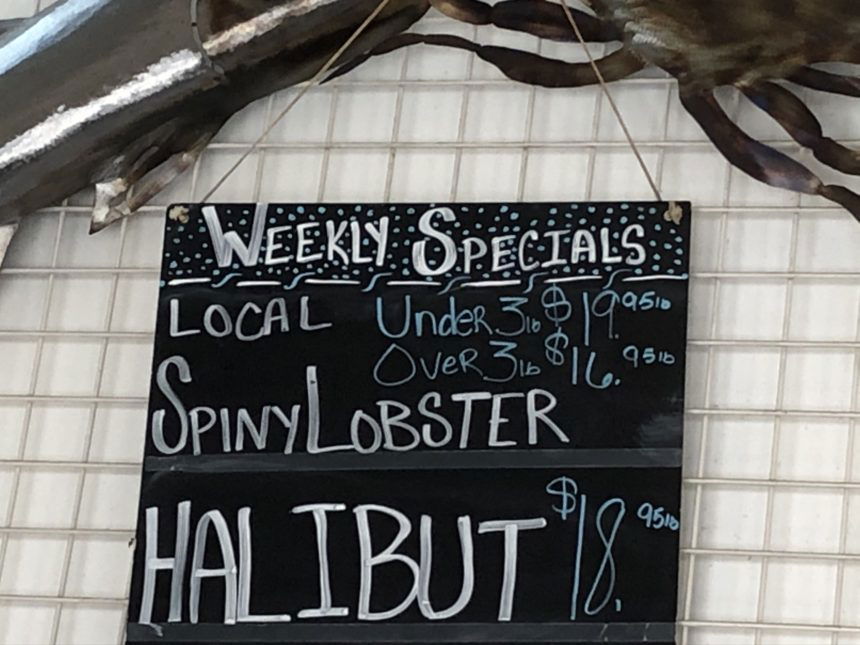 WEEKLY SPECIALS
LOCAL Under 3lb $19.95lb
Over 3lb $16.95lb
SPINY LOBSTER
HALIBUT $18.95lb